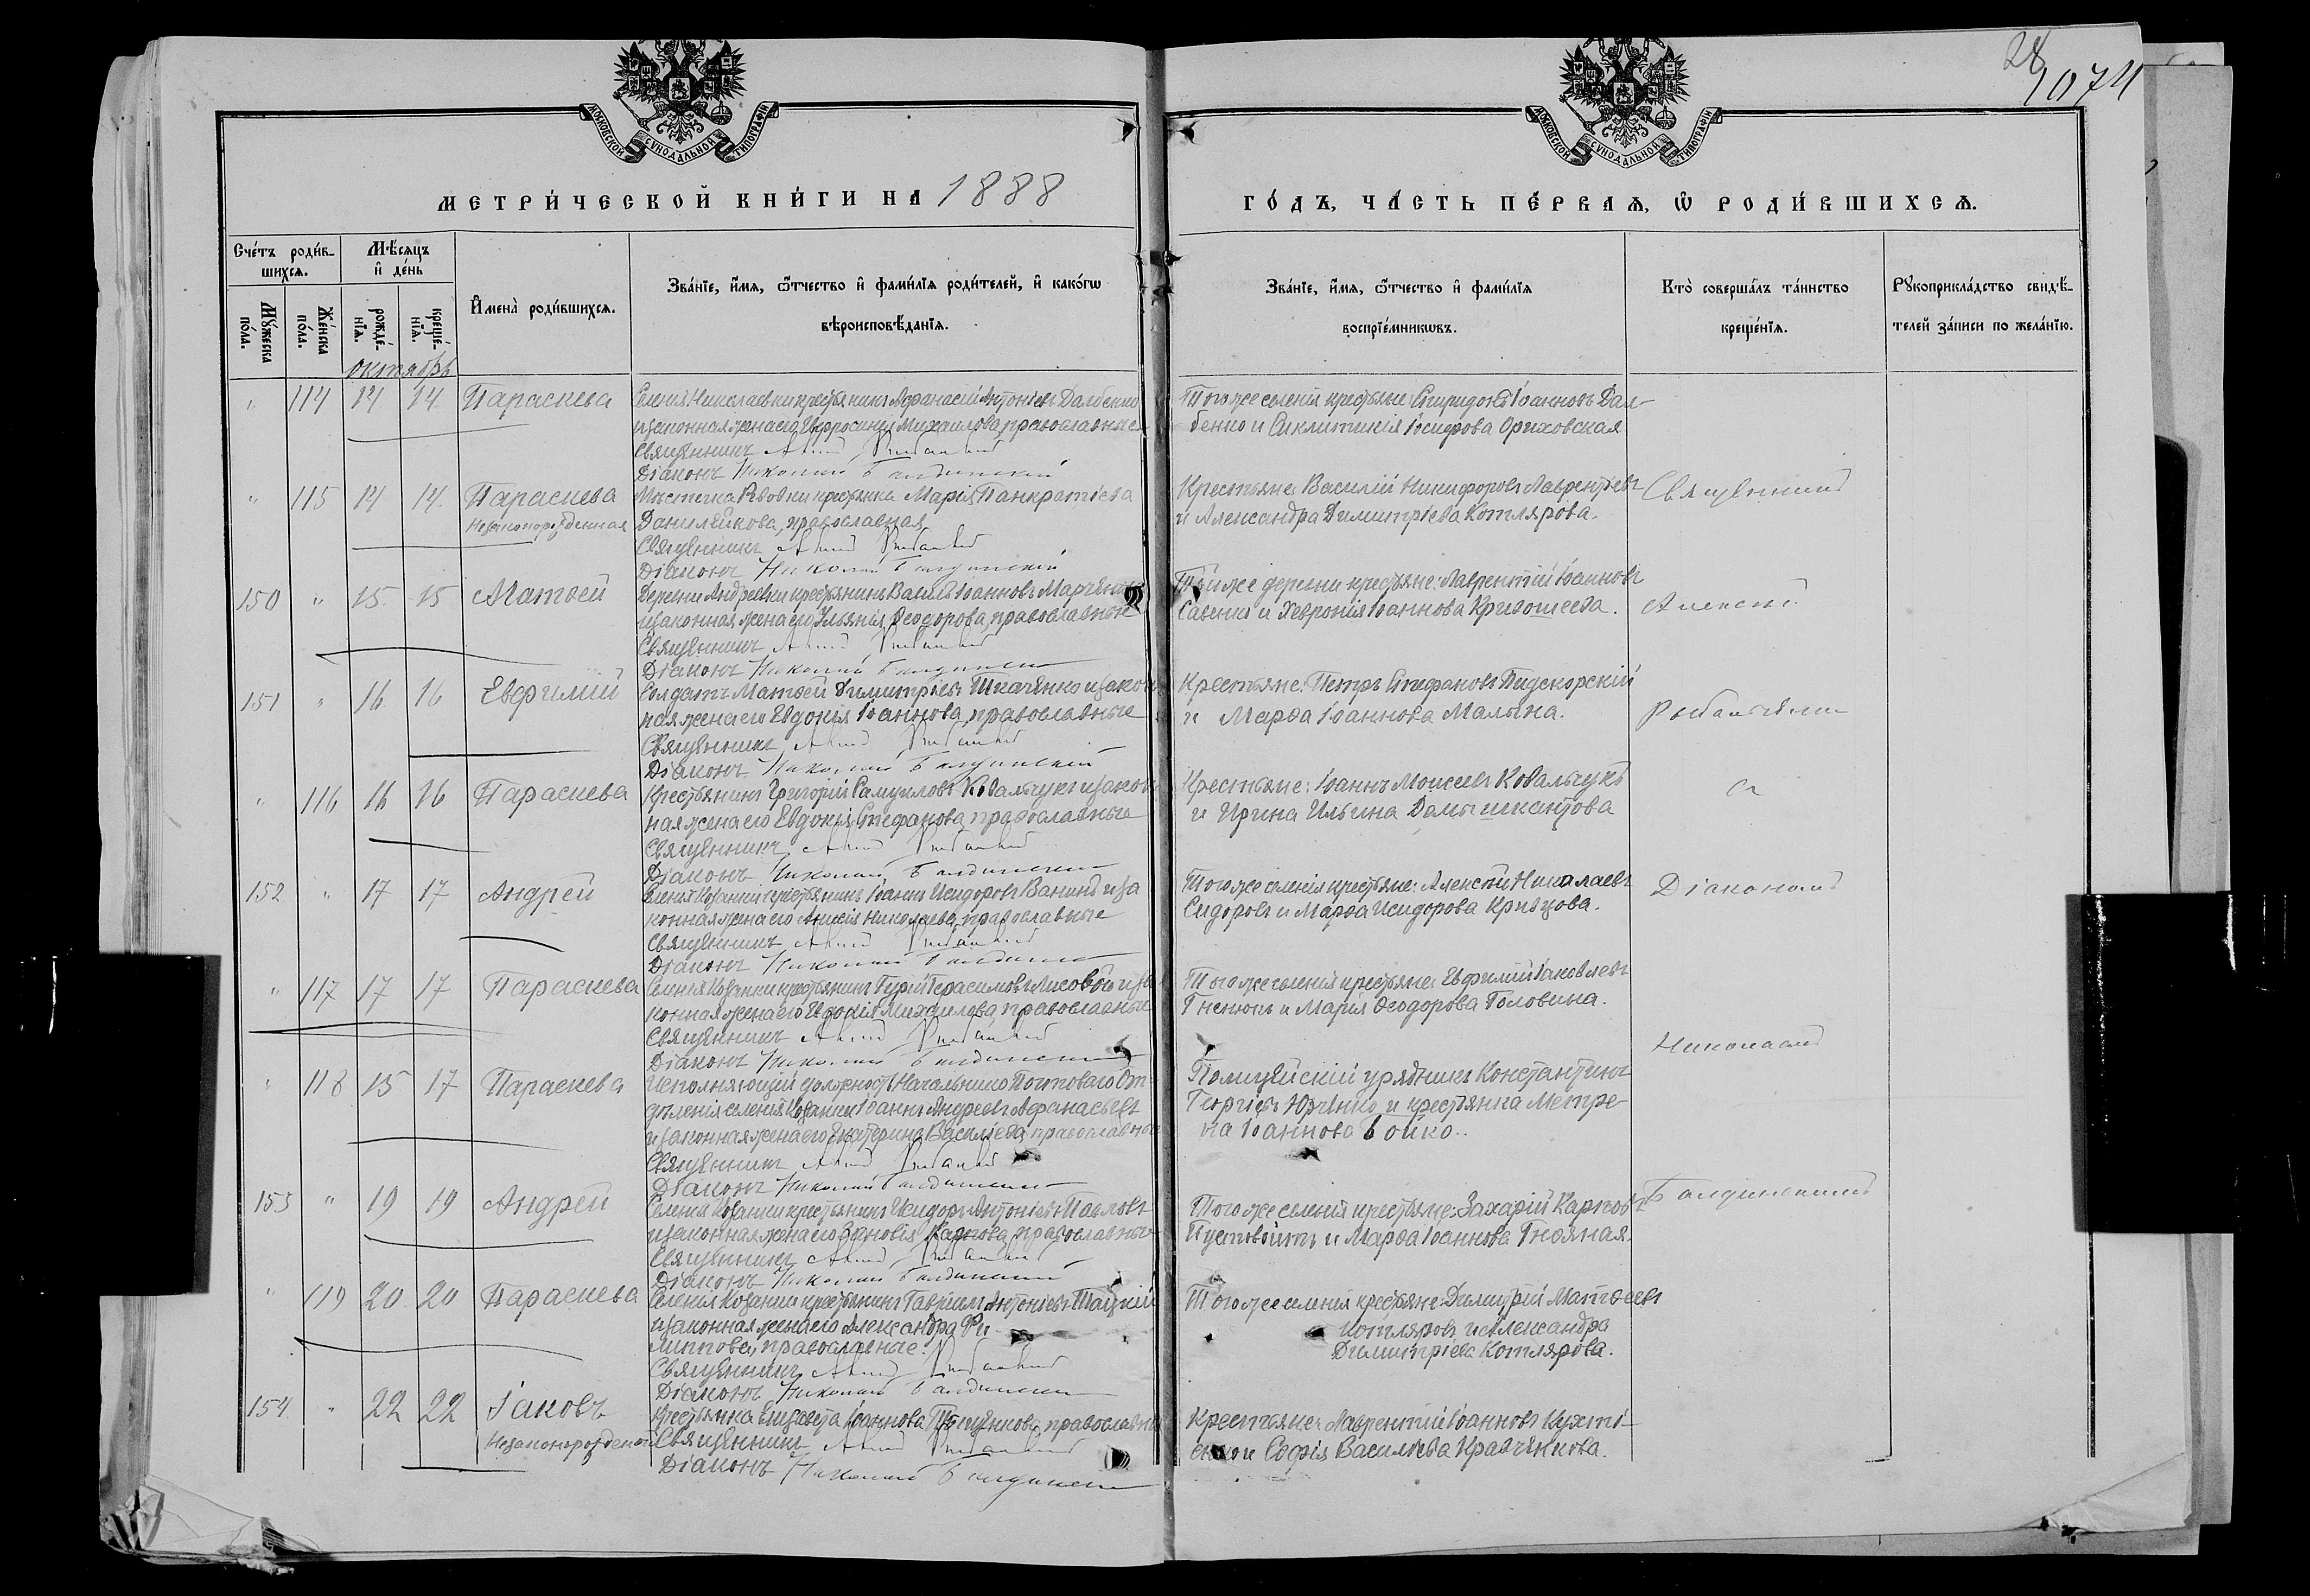 28
1074
МОСКОВСКОЙ СѴНОДАЛЬНОЙ ТИПОГРАФІИ
МОСКОВСКОЙ СѴНОДАЛЬНОЙ ТИПОГРАФІИ
МЕТРИ́ЧЕСКОЙ КНИ́ГИ НА 1888
ГО́ДЪ, ЧА́СТЬ ПЕ́РВАѦ, Ѡ РОДИ́ВШИХСѦ.
Сче́тъ роди́в-
шихсѧ.
Мѣ́сѧцъ
и҆ де́нь
Мꙋ́жеска по́ла.
Же́нска по́ла.
рожде́-нїѧ.
креще́-нїѧ.
И҆мена̀ роди́вшихсѧ.
Зва́нїе, и҆́мѧ, ѻ҆́тчество и҆ фами́лїѧ роди́телей, и҆ како́гѡ
вѣроисповѣ́данїѧ.
Зва́нїе, и҆́мѧ, ѻ҆́тчество и҆ фами́лїѧ
воспрїе́мникѡвъ.
Кто̀ соверша́лъ та́инство
креще́нїѧ.
Рꙋкоприкла́дство свидѣ́-
телей за́писи по жела́нїю.
октябрь
" 114 14 14 Параскева
Селенія Николаевки крестьянинъ Афанасій Антоніевъ Далбенко
и законная жена его Евфросинія Михаилова, православные
Священникъ
Діаконъ Николай
Того же селенія крестьяне: Спиридонъ Іоанновъ Дал-
бенко и Сиклитикія Іосифова Ориховская
" 115 14 14 Параскева
Незаконорожденная
Мѣстечка крестьянка Марія Панкратіева
Данилейкова, православная
Священникъ
Діаконъ Николай
Крестьяне: Василій Никифоровъ Лаврентіевъ
и Александра Димитріева Котлярова.
Священникъ
150 " 15 15 Матѳей
Деревни Андреевки крестьянинъ Іоанновъ
и законная жена его Ульянія Ѳеодорова, православные
Священникъ
Діаконъ Николай
Той же деревни крестьяне: Лаврентій Іоанновъ
Савенко и Хеvронія Іоаннова Кривошеева.
Алексій
151 " 16 16 Евфимій
Солдатъ Матѳей Димитріевъ Ткаченко и закон
ная жена его Евдокія Іоаннова, православные
Священникъ
Діаконъ Николай
Крестьяне: Петръ Стефановъ Пидскорскій
и Марѳа Іоаннова Малына.
" 116 16 16 Параскева
Крестьянинъ Григорій Самуиловъ Ковальчукъ и закон
ная жена его Евдокія Стефанова, православные
Священникъ
Діаконъ Николай
Крестьяне: Іоаннъ Моисеевъ Ковальчукъ
и Ирина Ильина
съ
152 " 17 17 Андрей
Селенія Казанки крестьянинъ Іоаннъ Исидоровъ и за
конная жена его Анисія Николаева, православные
Священникъ
Діаконъ Николай
Того же селенія крестьяне: Алексѣй Николаевъ
Сидоровъ и Марѳа Исидорова Кривцова.
Діакономъ
" 117 17 17 Параскева
Селенія Казанки крестьянинъ Гурій Герасимовъ Лисовой и за
конная жена его Евдокія Михаилова, православные
Священникъ
Діаконъ Николай
Того же селенія крестьяне: Евфимій Іаковлевъ
Гненюкъ и Марія Ѳеодорова Головина.
Николаемъ
" 118 15 17 Параскева
Исполняющій должность Начальника Почтоваго От
дѣленія селенія Казанки Іоаннъ Андреевъ Афанасьевъ
и законная жена его Екатерина Василіева, православные
Священникъ
Діаконъ Николай
Полицейскій урядникъ Константинъ
Георгіевъ Юрченко и крестьянка Матре-
на Іоаннова Бойко.
153 " 19 19 Андрей
Селенія Казанки крестьянинъ Исидоръ Антоніевъ Павловъ
и законная жена его Зиновія Карпова, православные
Священникъ
Діаконъ Николай
Того же селенія крестьяне: Захарій Карповъ
Пустовойтъ и Марѳа Іоаннова Гнояная.
" 119 20 20 Параскева
Селенія Казанки крестьянинъ Гавріилъ Антоніевъ Тацкій
и законная жена его Александра Фи-
липпова, православные.
Священникъ
Діаконъ Николай
Того же селенія крестьяне: Димитрій Матѳеевъ
Котляровъ и Александра
Димитріева Котлярова.
154 " 22 22 Іаковъ
Незаконорожденный
Крестьянка Елизавета Іоаннова, православная
Священникъ
Діаконъ Николай
Крестьяне: Лаврентій Іоанновъ Кухті-
енко и Софія Василіева Кравченкова.